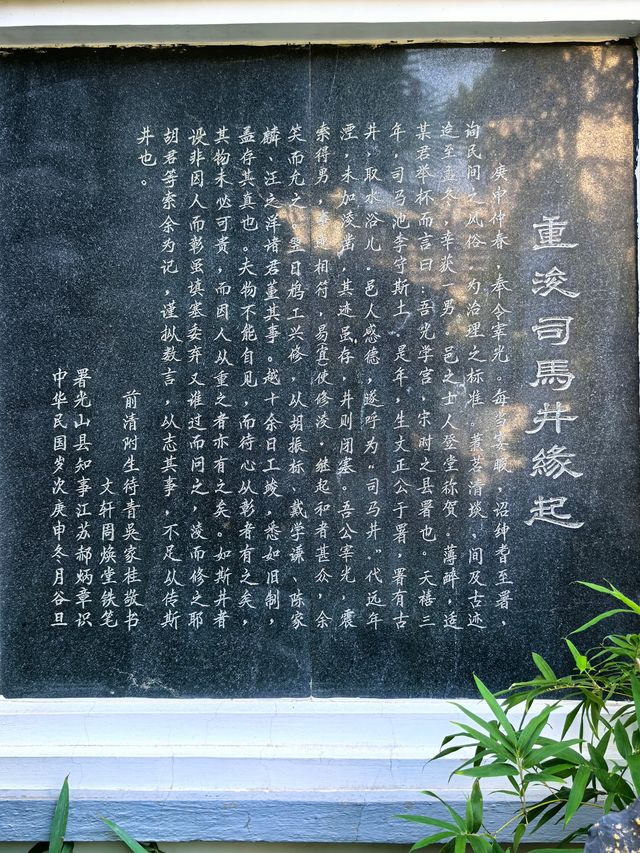 重浚司马井缘起
庚申仲春，奉令宰光。每当宴暇，诏绅耆至署，
询民间之风俗，为治理之标准。煮茗清谈，间及古迹
迄至孟冬，幸获一男，邑之士人登堂祢贺。薄醉，适
某君举杯而言曰：吾光学宫，宋时之县署也。天禧三
年，司马池李守斯土，是年，生文正公于署，署有古
井，取水浴儿，邑人感德，遂呼为“司马井”代远年
湮，未加浚凿，其迹虽存，井则闭塞。吾公宰光，震
索得男，事迹相符，易宜使修浚。继起和者甚众，余
笑而允之。翌日鸠工兴修，从胡振标、戴学谦、陈家
麟、汪之洋诸君董其事。越十余日工竣，悉如旧制，
盖存其真也。夫物不能自见，而待心从彰者有之矣，
其物未必可贵，而因人从重之者亦有之矣。如斯井者
设非因人而彰虽填塞委弃又谁过而问之，浚而修之耶
胡君等索余为记，谨拟数言，从志其事，不足从传斯
井也。
前清附生待青吴家桂敬书
文轩周焕堂铁笔
署光山县知事江苏郝炳章识
中华民国岁次庚申冬月谷旦